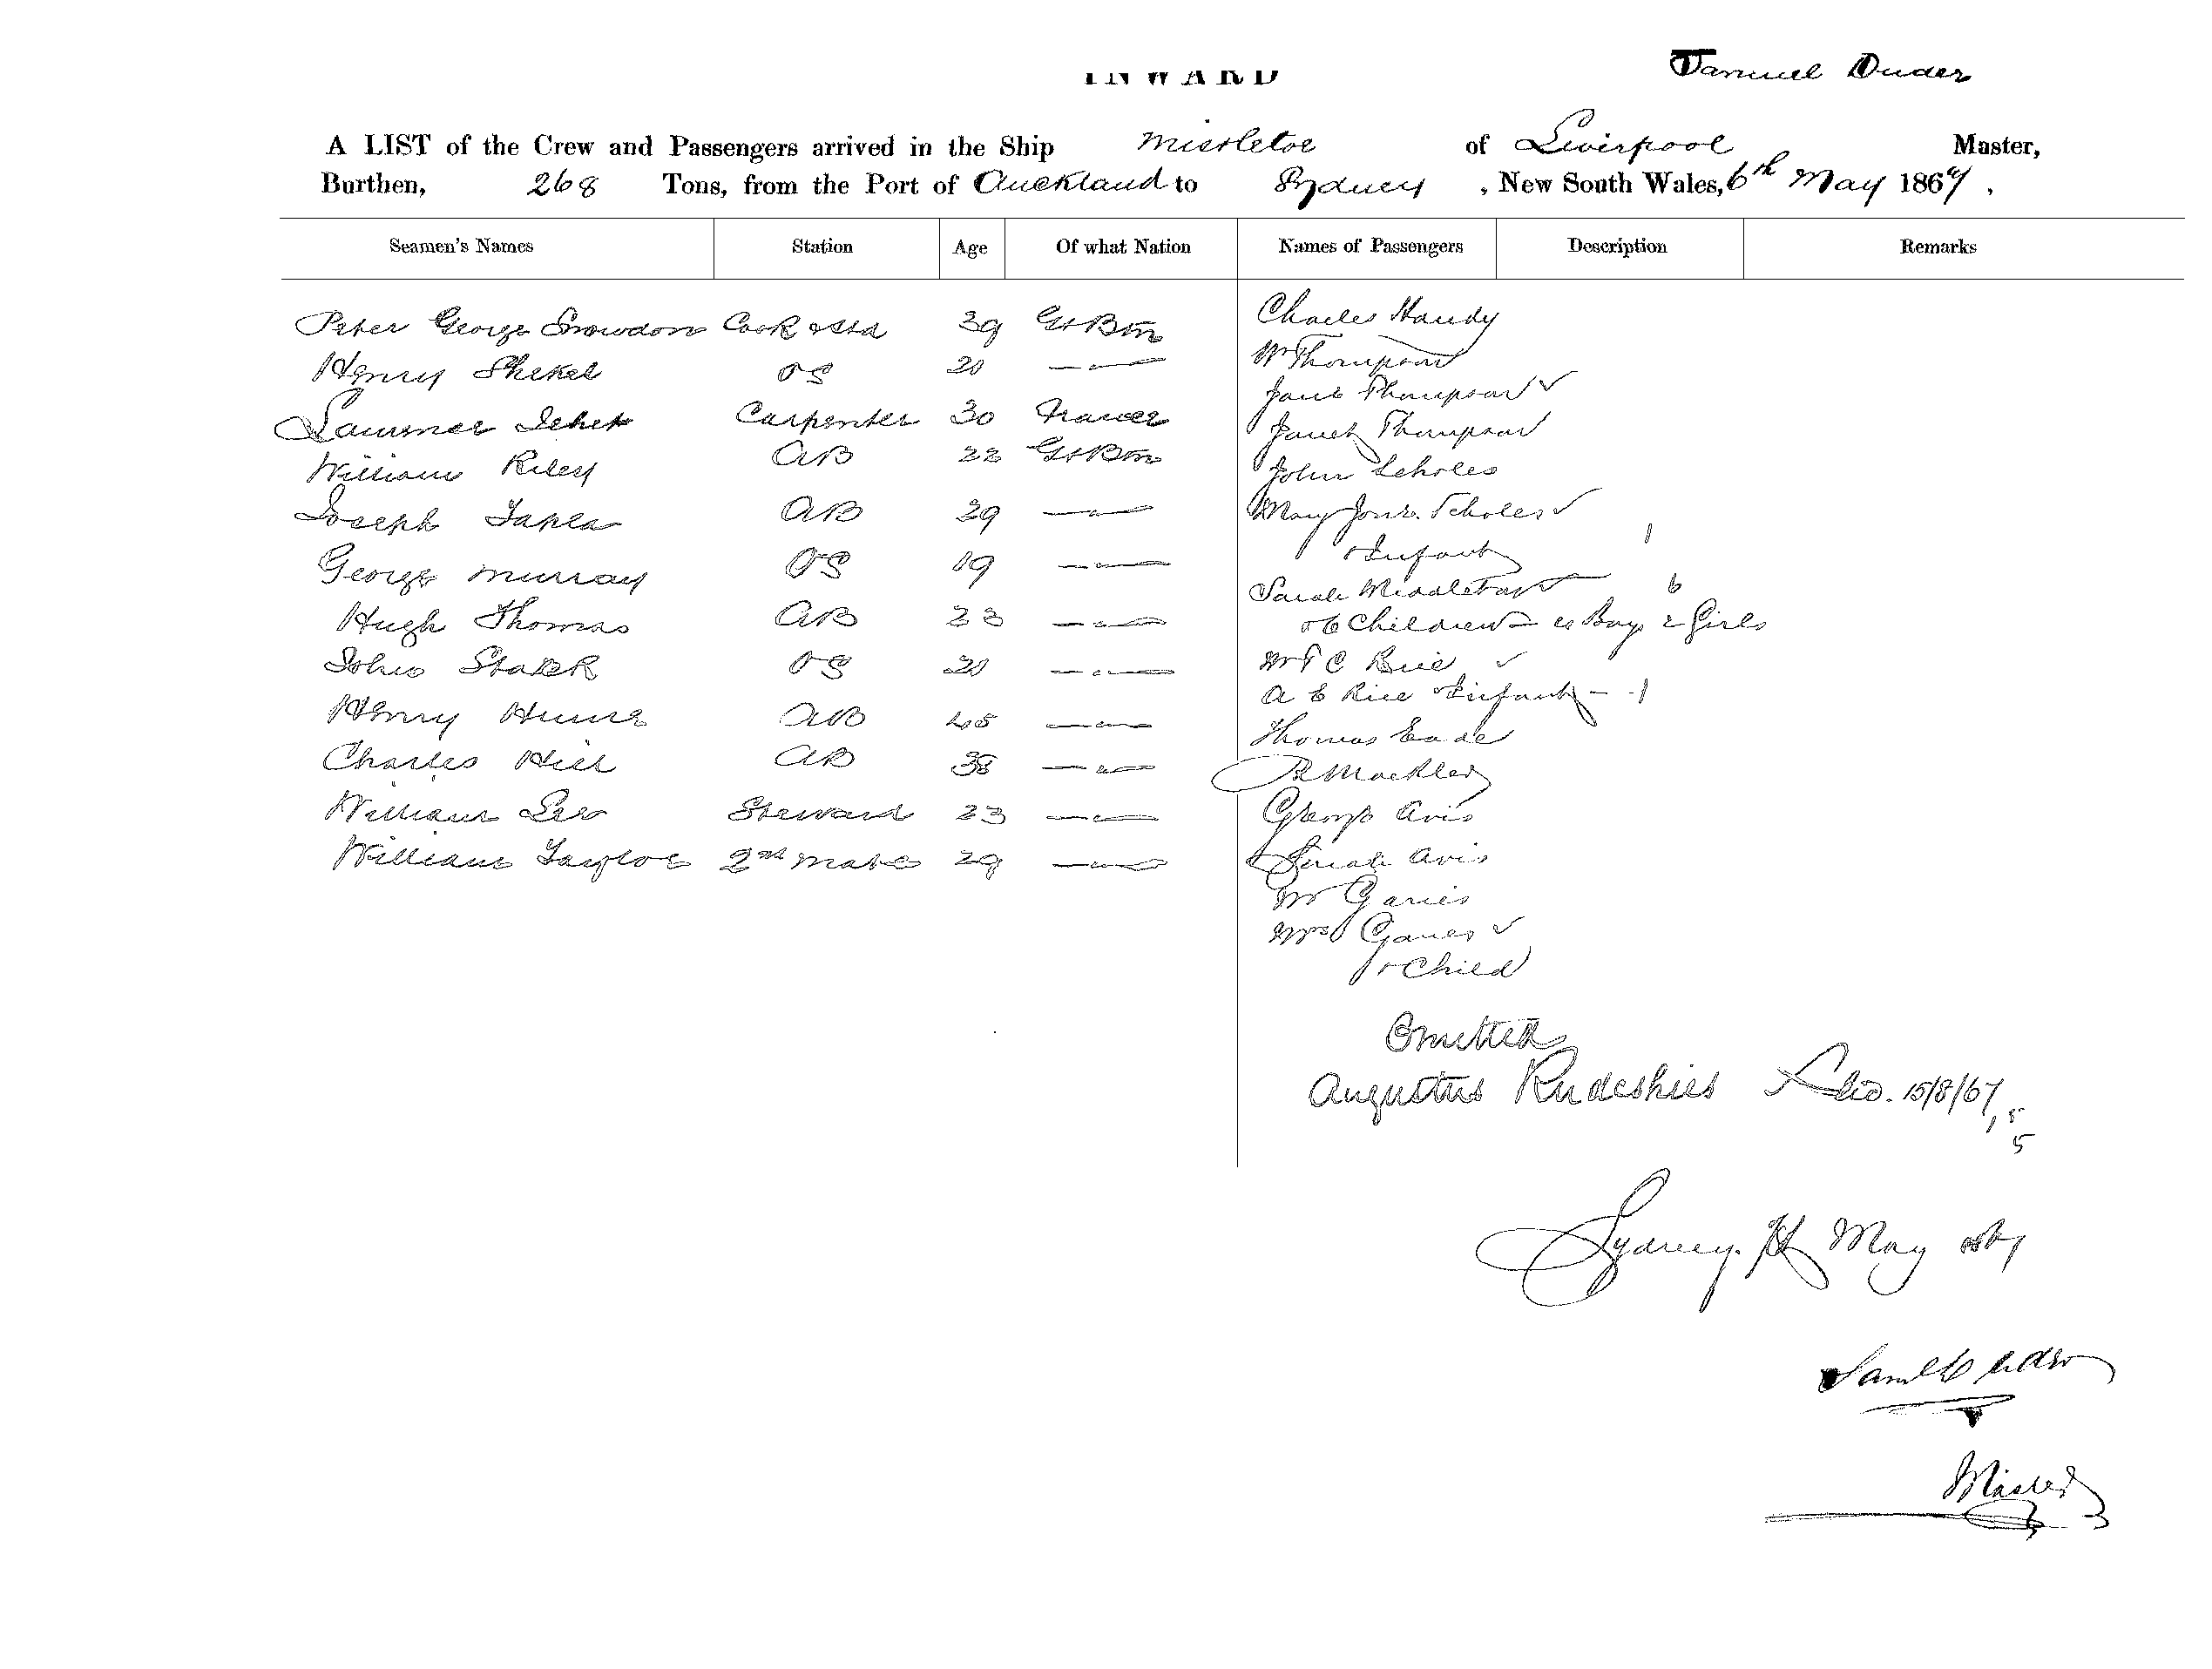 INWARD
Samuel Duder
A LIST of the Crew and Passengers arrived in the Ship Mistletoe of Liverpool Master,
Burthen, 268 Tons, from the Port of Auckland to Sydney , New South Wales, 6th May 1867 .
Seamen's Names Station Age Of what Nation Names of Passengers Description Remarks
Peter George Snowdon Cook & Std 39 Gt Btn Charles Handy
Henry Shekel OS 20 — " — Wm Thompson
Jane Thompson ✓
Carpenter 30 France Janet Thompson
William Riley AB 22 Gt Btn John Scholes
Joseph Tapla AB 29 — " — Mary Jane Scholes ✓
& Infant 1
George Murray OS 19 — " — Sarah Middleton 6
Hugh Thomas AB 23 — " — & 6 Children — 4 Boys 2 Girls
John Stark OS 20 — " — Mrs C Rice ✓
A E Rice & Infant — 1
Henry Hume AB 45 — " — Thomas Eade
Charles Hill AB 38 — " — R Mackley
William Lee Steward 23 — " — George Avis
William Taylor 2nd Mate 29 — " — Sarah Avis
Mr Ganes
Mrs Ganes ✓
& Child
Omitted
Augustus Rudeshies 15/8/67
5
Sydney May 1867
Saml Duder
Master